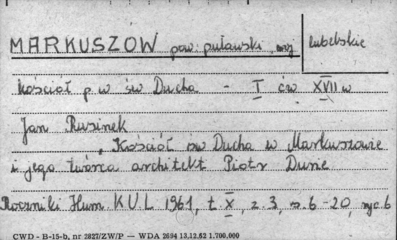 MARKUSZÓW pow. puławski, woj lubelskie
Kościół p.w św Ducha - I ćw XVII w
Jan Rusinek
"Kościół św Ducha w Markuszowie
i jego twórca architekt Piotr Durie
Roczniki Hum. K.U.L 1961, t. X, z. 3, s. 6-20, ryc 6
CWD - B-15-b, nr 2827/ZW/P — WDA 2694 13.12.62 1.700.000